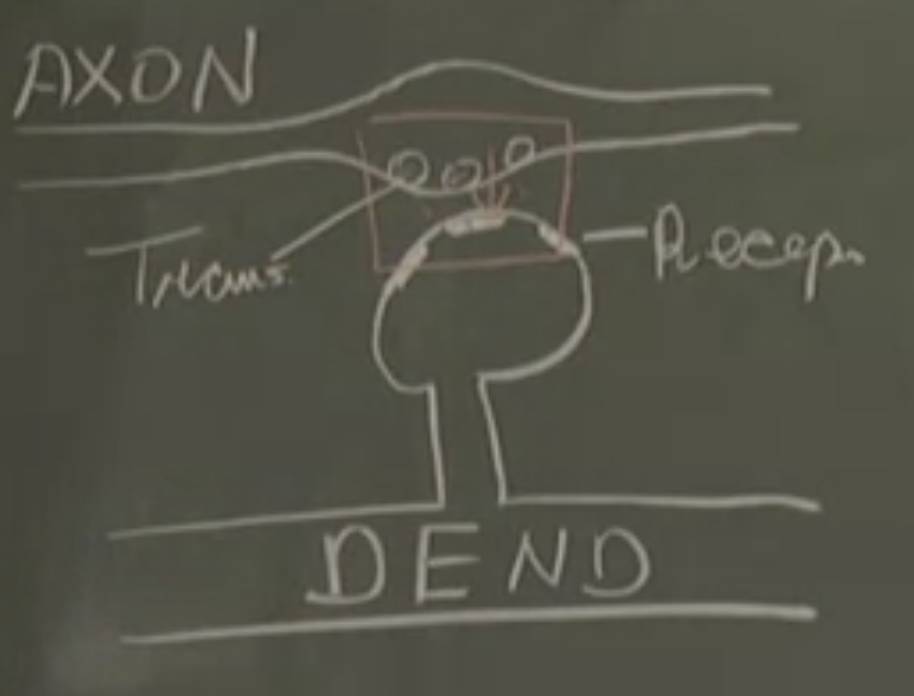 AXON
Trans.
Recep.
DEND